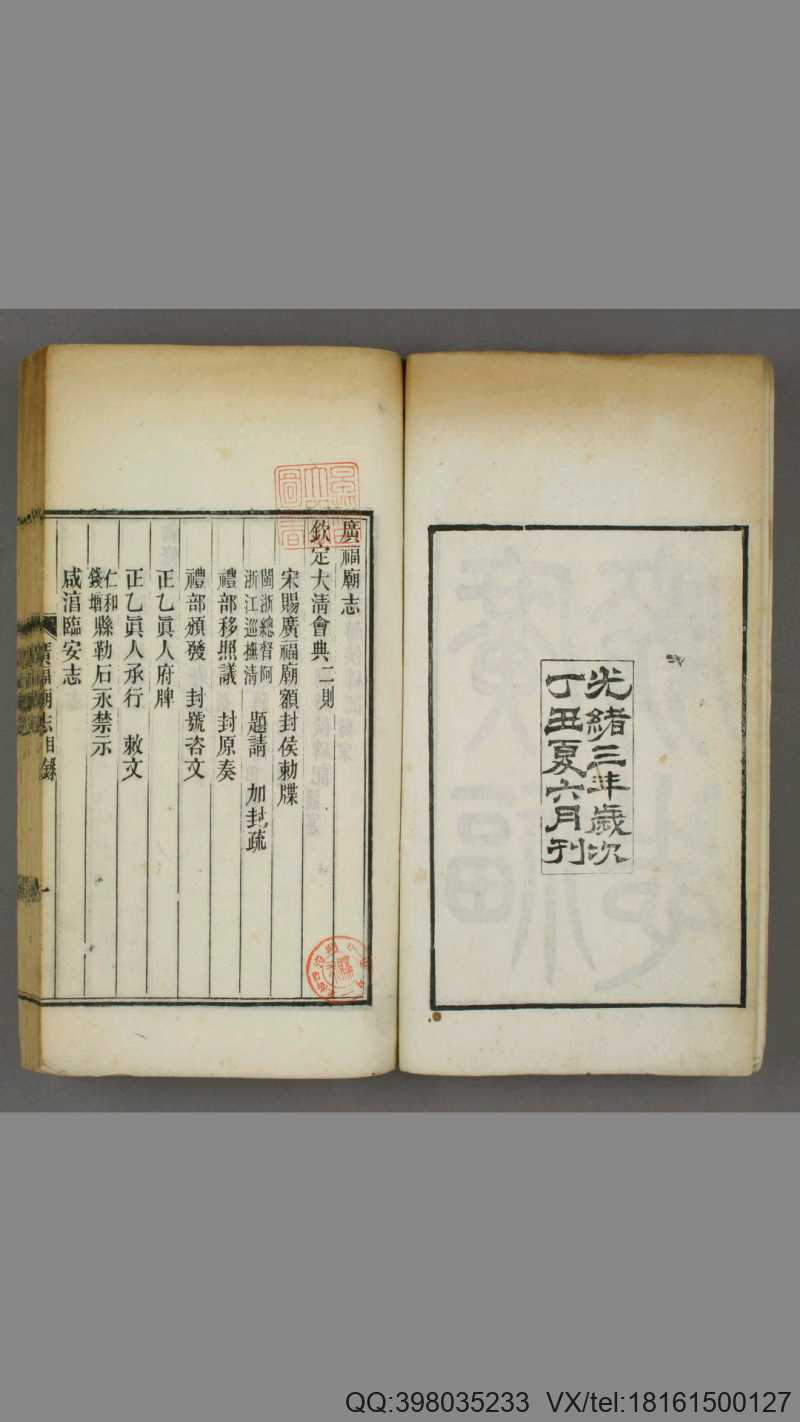 光緒三年歲次
丁丑夏六月刊
廣福廟志
欽定大清會典二則
宋賜廣福廟額封侯勅牒
閩浙總督阿
浙江巡撫清
題請 加封疏
禮部移照議 封原奏
禮部頒發 封號咨文
正乙眞人府牌
正乙眞人承行 敕文
仁和
錢塘
縣勒石永禁示
咸淳臨安志
廣福廟志目錄
一
QQ:398035233 VX/tel:18161500127